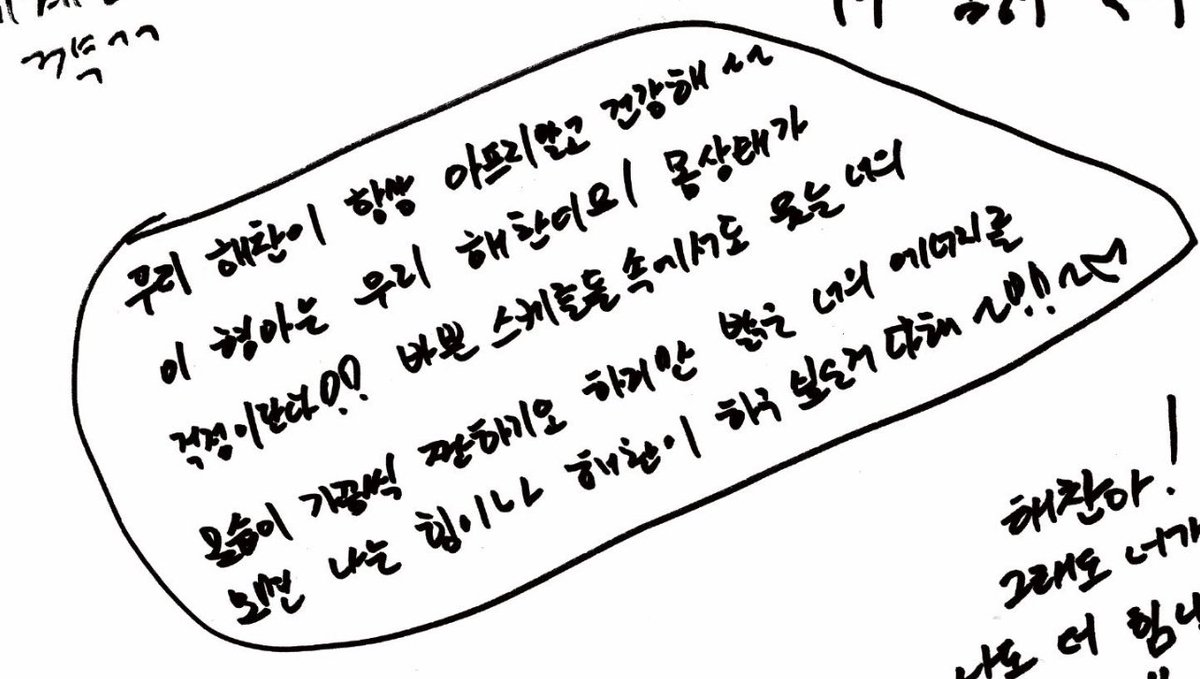 우리 해찬이 항상 아프지말고 건강해 ~~
이 형아는 우리 해찬이의 몸상태가
걱정이란다!! 바쁜 스케줄들 속에서도 웃는 너의
모습이 가끔씩 짠하기도 하지만 밝은 너의 에너지를
보면 나는 힘이나 해찬이 하구 싶은거 다해 ~!!~♡
해찬아!
그래도 너가
나도 더 힘내